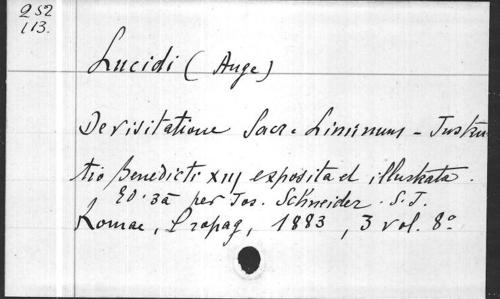 252
113.
Lucidi ( Ange)
De visitatione Sacr. Liminum - Instru
tio Benedicti XIII exposita et illustrata.
Ed. 3a per Jos. Schneider. S. J.
Romae, Propag, 1883, 3 vol. 8º